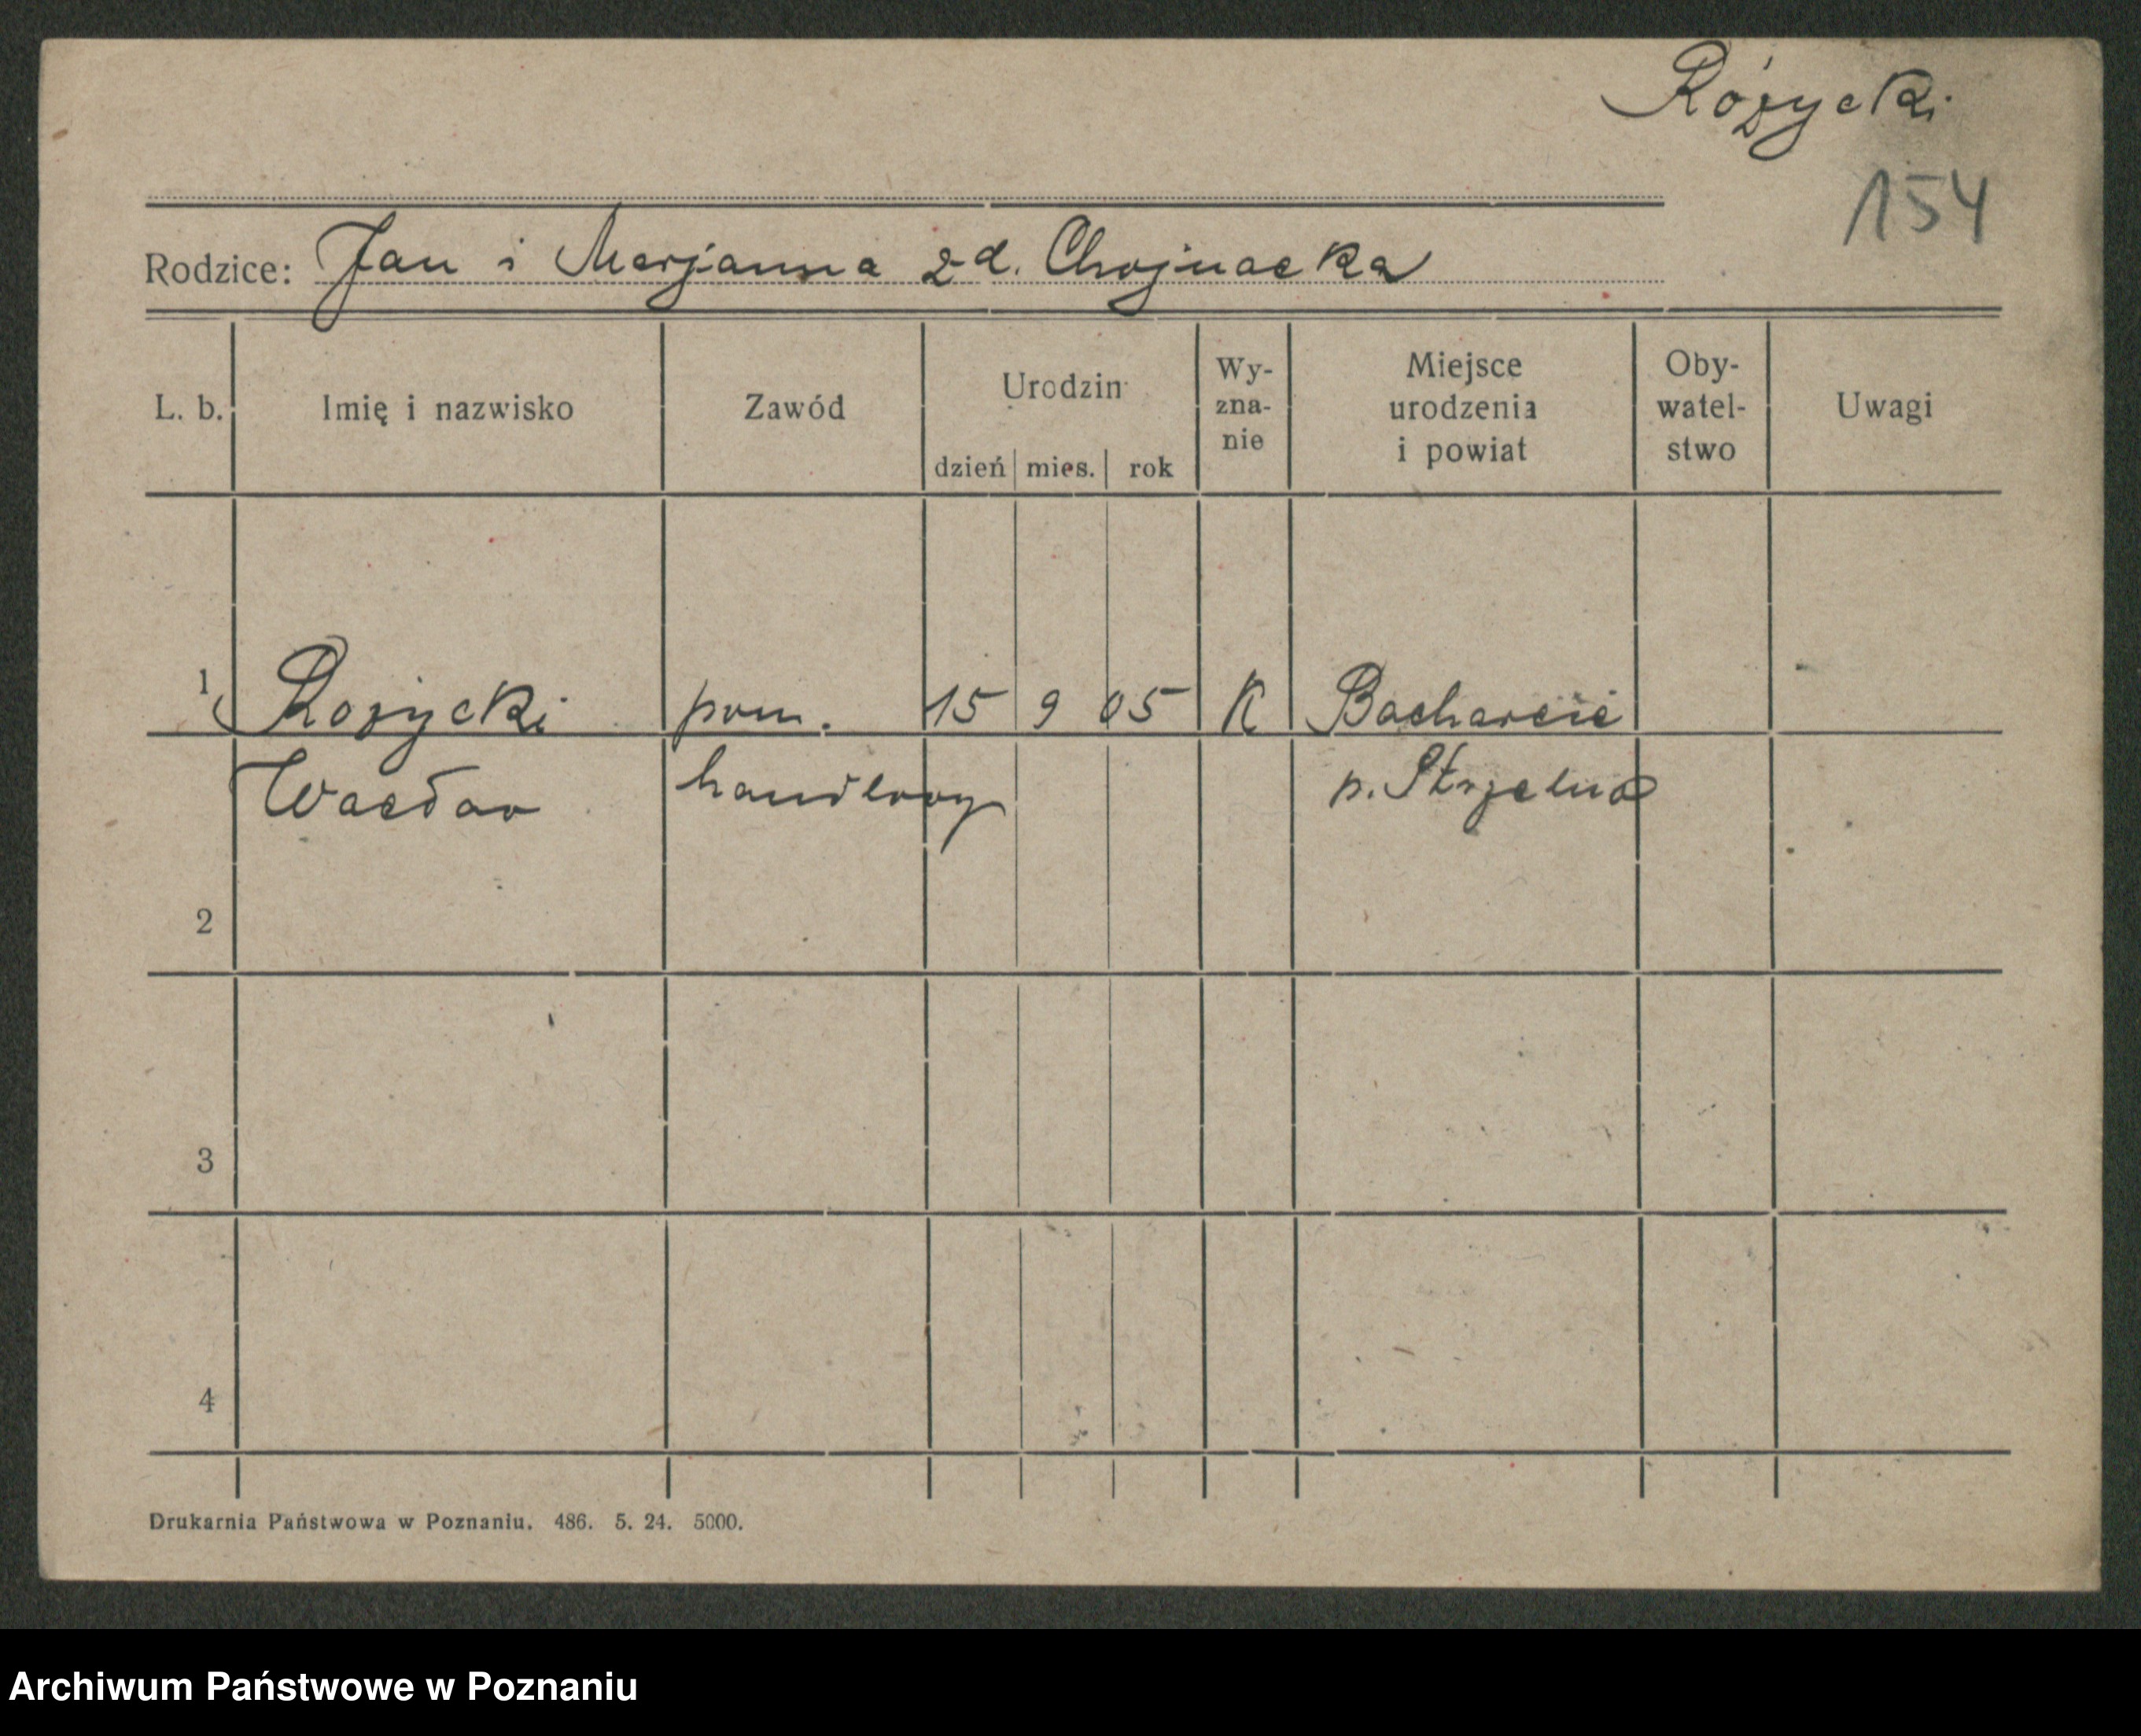 Różycki
154
Rodzice: Jan i Marjanna zd. Chojnacka
L. b. Imię i nazwisko Zawód Urodzin Wy- zna- nie Miejsce urodzenia i powiat Oby- watel- stwo Uwagi
dzień mies. rok
1 Rożycki pom. 15 9 05 K Bacharcie
Wacław handlowy p. Strzelno
2
3
4
Drukarnia Państwowa w Poznaniu. 486. 5. 24. 5000.
Archiwum Państwowe w Poznaniu